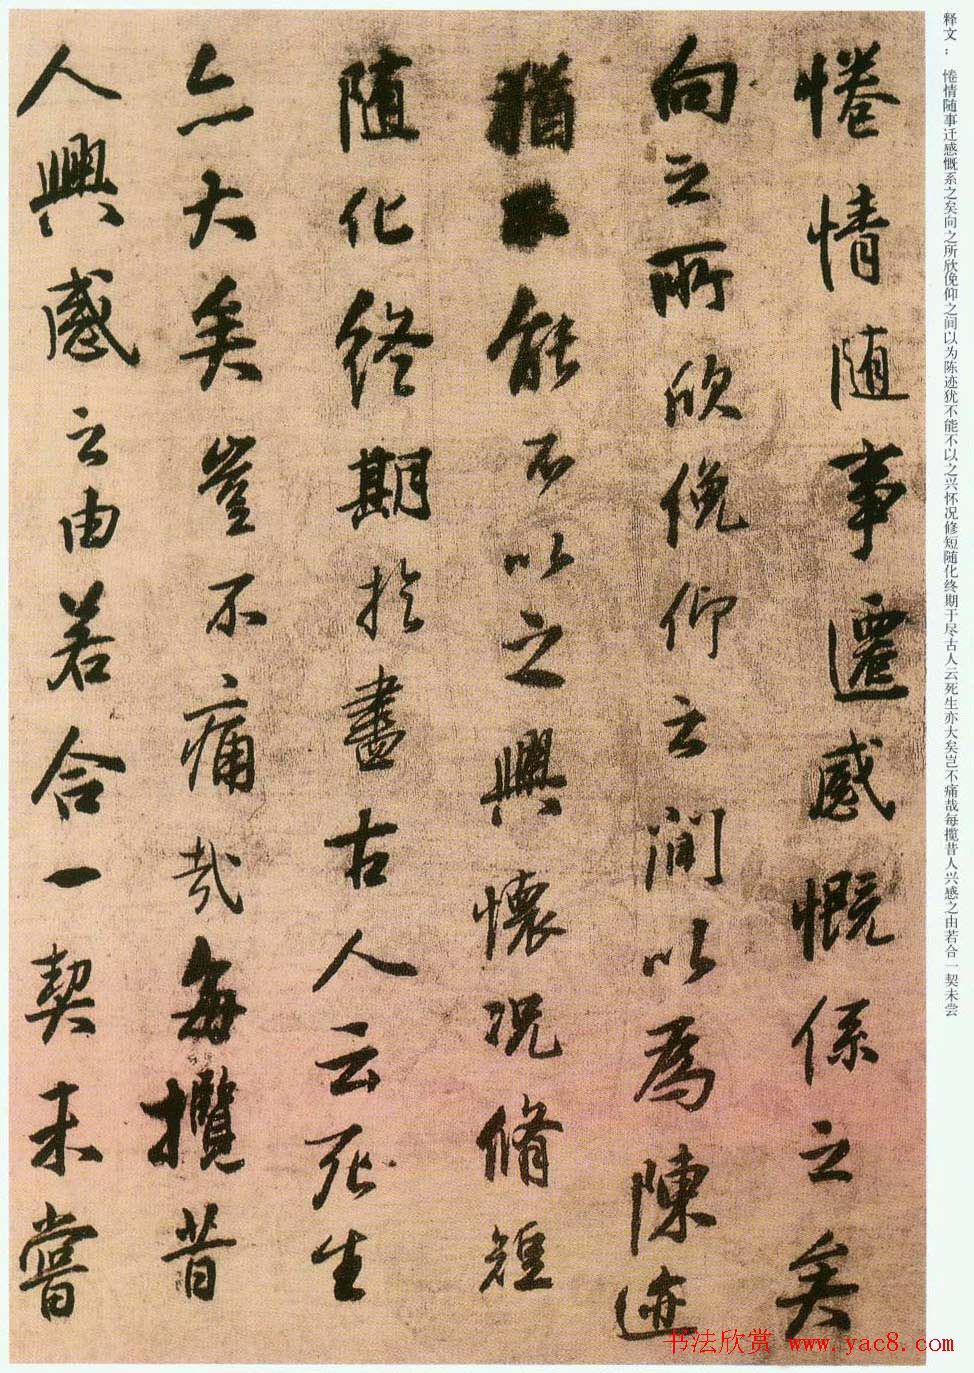 释文：惓情随事迁感慨系之矣向之所欣俛仰之间以为陈迹犹不能不以之兴怀况修短随化终期于尽古人云死生亦大矣岂不痛哉每揽昔人兴感之由若合一契未尝
惓情随事遷感慨係之矣
向之所欣俛仰之間以為陳迹
猶不能不以之興懷况脩短
随化終期於盡古人云死生
亦大矣豈不痛哉每攬昔
人興感之由若合一契未嘗
书法欣赏 www.yac8.com